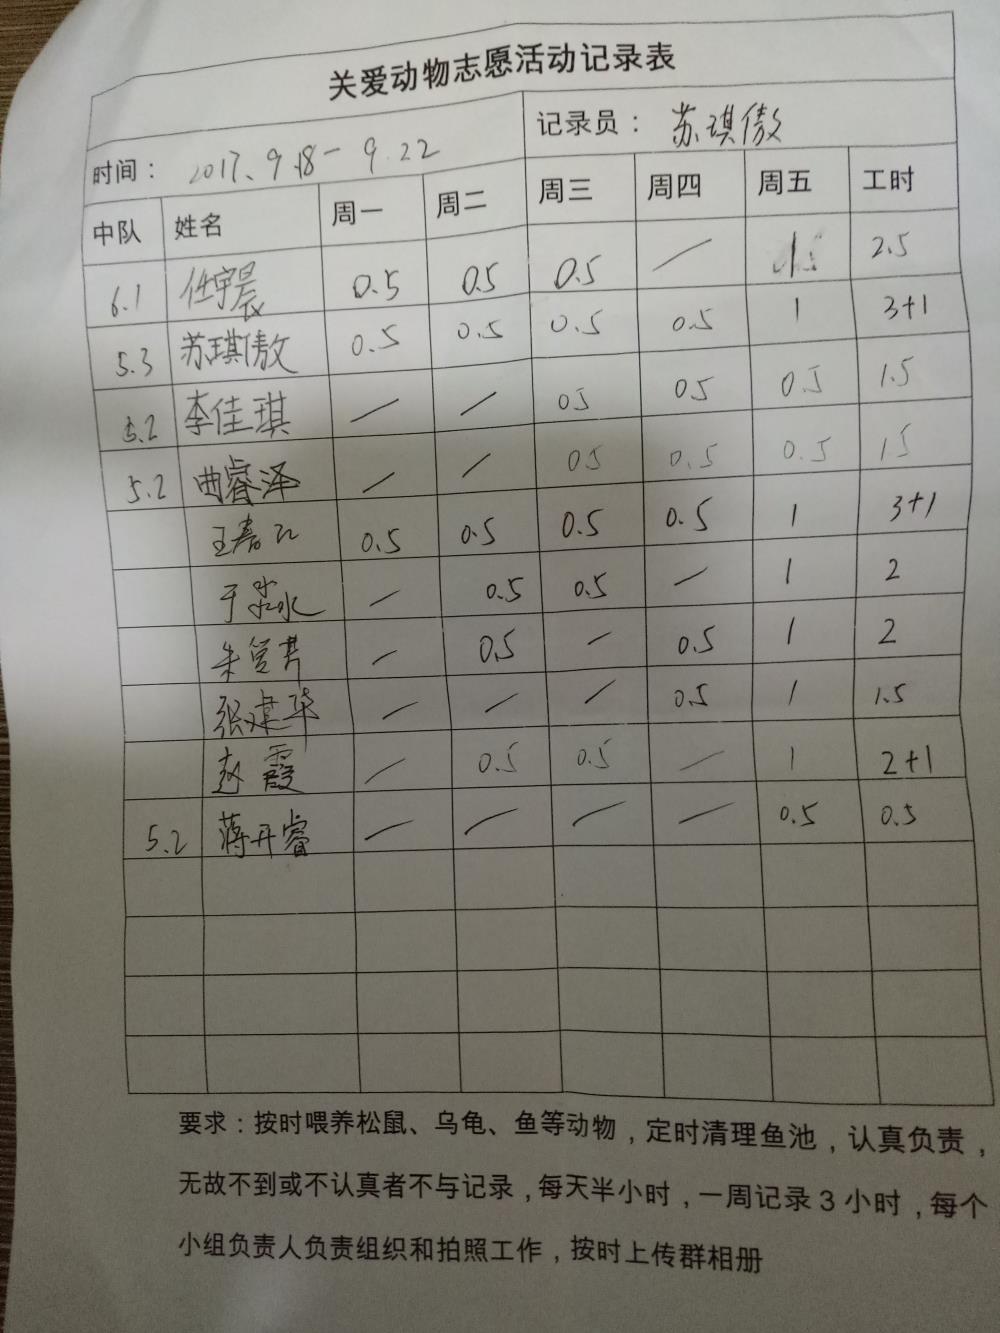 关爱动物志愿活动记录表
时间： 2017、9.18－9.22 记录员： 苏琪傲
中队 姓名 周一 周二 周三 周四 周五 工时
6.1 任宇晨 0.5 0.5 0.5 / 2.5
5.3 苏琪傲 0.5 0.5 0.5 0.5 1 3+1
5.2 李佳琪 / / 0.5 0.5 0.5 1.5
5.2 曲睿泽 / / 0.5 0.5 0.5 1.5
王春 0.5 0.5 0.5 0.5 1 3+1
于 / 0.5 0.5 / 1 2
朱 / 0.5 / 0.5 1 2
张建华 / / / 0.5 1 1.5
赵霞 / 0.5 0.5 / 1 2+1
5.2 蒋开睿 / / / / 0.5 0.5
要求：按时喂养松鼠、乌龟、鱼等动物，定时清理鱼池，认真负责，
无故不到或不认真者不与记录，每天半小时，一周记录3小时，每个
小组负责人负责组织和拍照工作，按时上传群相册